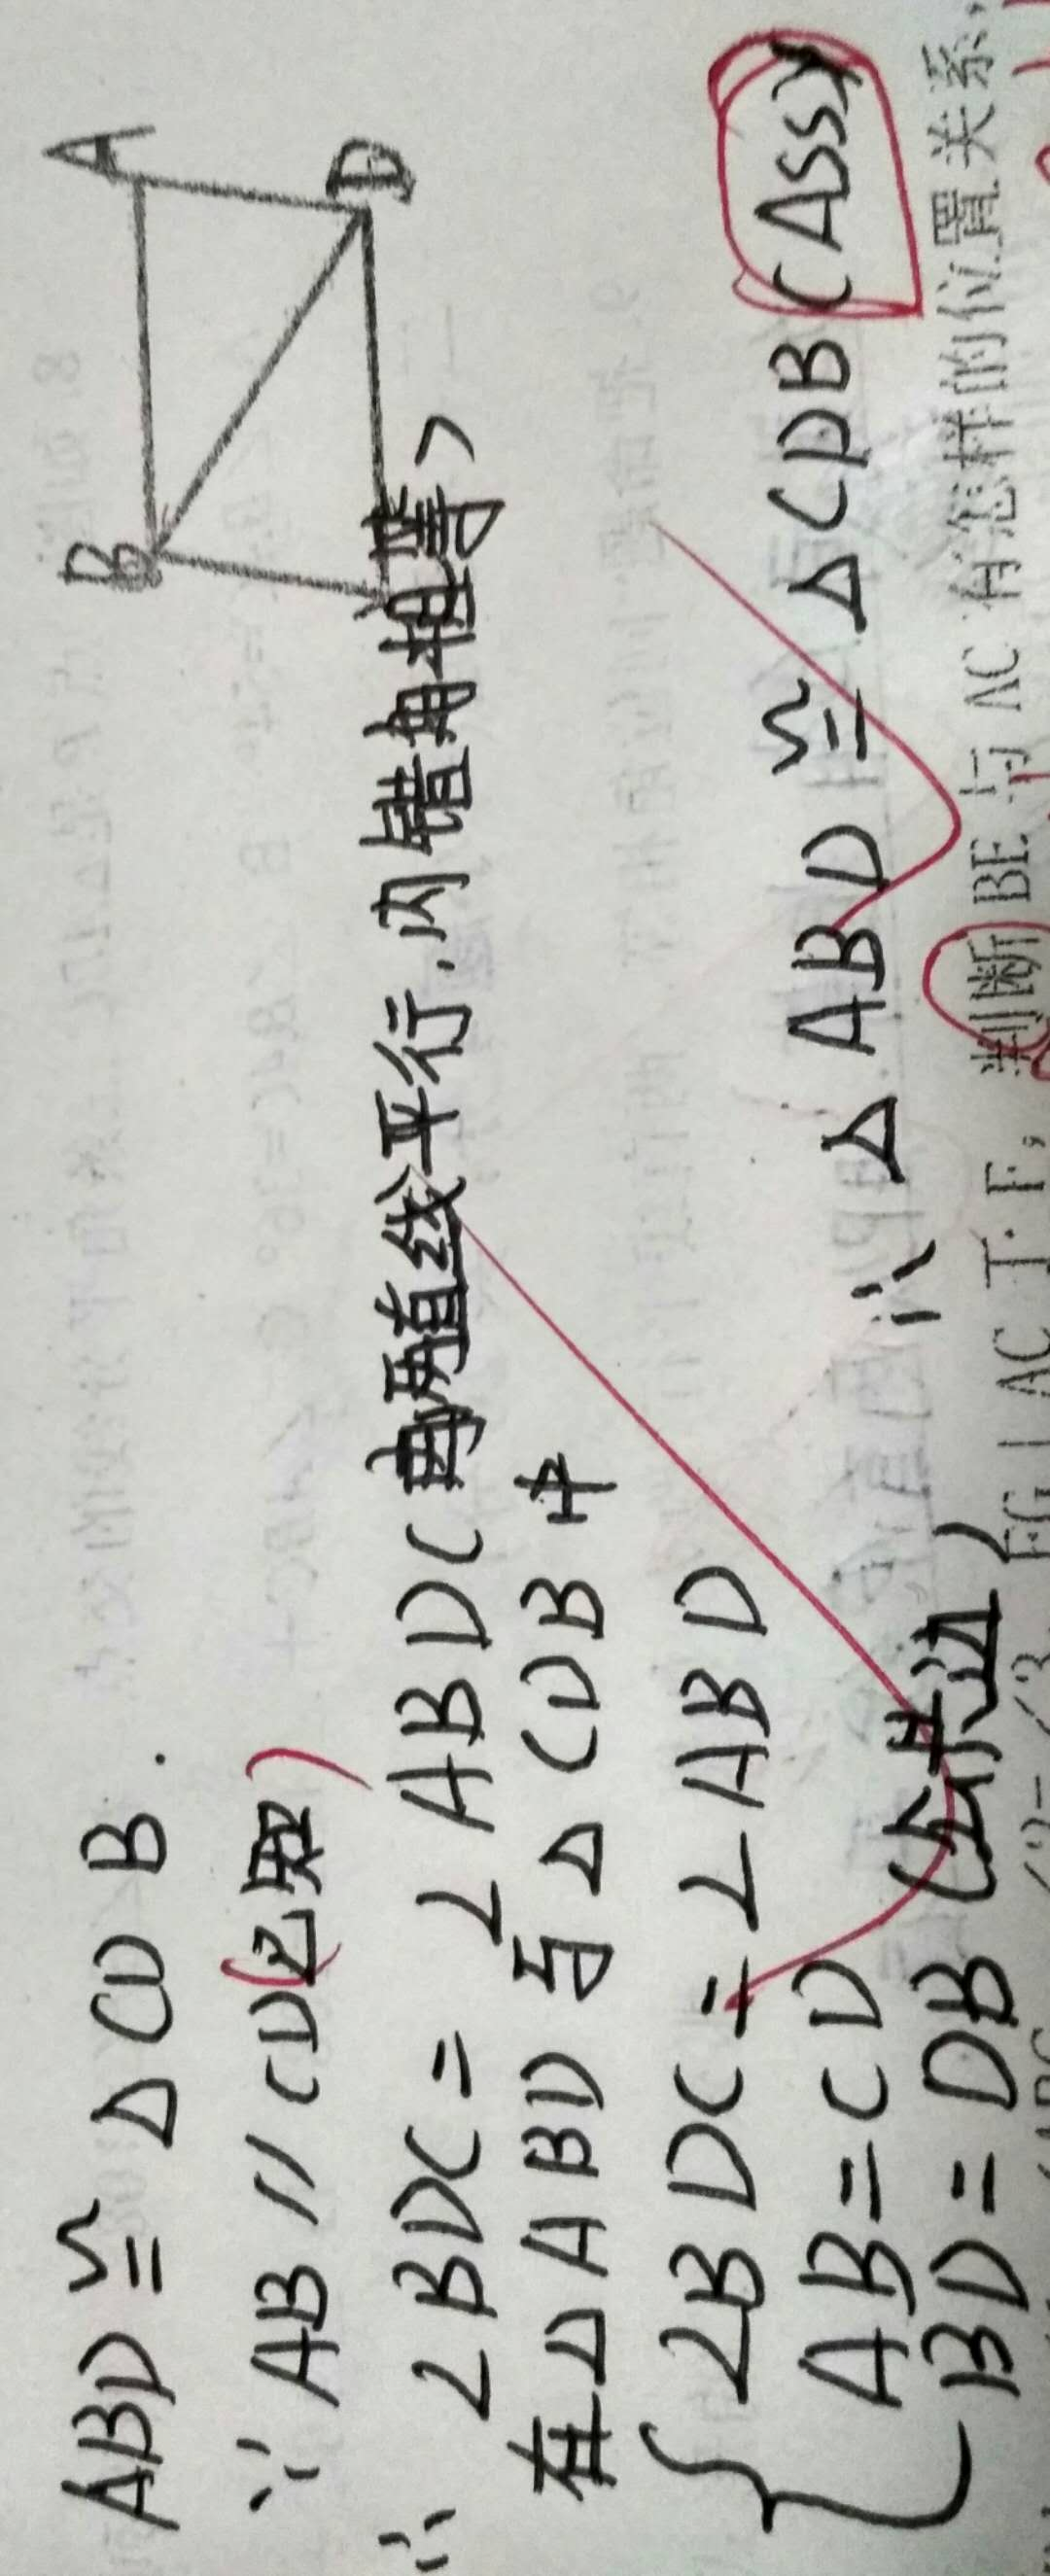 A
B
D
ABD ≌ △CDB.
∵ AB // CD(已知)
∴ ∠BDC = ∠ABD(两直线平行,内错角相等)
在△ABD与△CDB中
∠BDC = ∠ABD
AB = CD
BD = DB (公共边)
∴ △ABD ≌ △CDB (ASS)
AC于F, 判断BE与AC有怎样的位置关系,